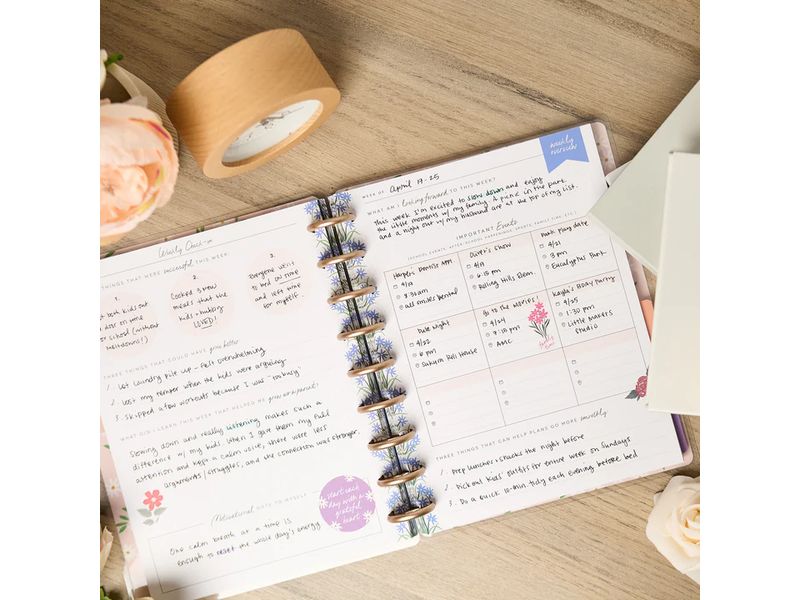 Weekly Check-in
THINGS THAT WERE successful THIS WEEK
1.
both kids out
door on time
school (without
meltdowns!)
2.
Cooked 3 new
meals that the
kids + hubby
LOVED!
3.
Everyone was
in bed on time
and left time
for myself.
THREE THINGS THAT COULD HAVE gone better
1. Lot laundry pile up - felt overwhelming
2. Lost my temper when the kids were arguing
3. Skipped a few workouts because I was "too busy"
WHAT DID I LEARN THIS WEEK THAT HELPED ME grow as a parent?
Slowing down and really listening makes such a
difference w/ my kids. When I gave them my full
attention and kept a calm voice, there were less
arguments/struggles, and the connection was stronger.
start each
day with a
grateful
heart
Motivational NOTE TO MYSELF
One calm breath at a time is
enough to reset the whole day's energy
weekly
overview
WEEK OF April 19-25
WHAT AM I looking forward TO THIS WEEK?
This week I'm excited to slow down and enjoy
the little moments w/ my family. A picnic in the park
and a night out w/ my husband are at the top of my list.
IMPORTANT Events
(SCHOOL EVENTS, AFTER-SCHOOL HAPPENINGS, SPORTS, FAMILY TIME, ETC.)
Harper's Dentist Appt
8:30 am
All Smiles Dental
Oliver's Show
6:15 pm
Rolling Hills Elem.
Park Play date
4/21
3 pm
Eucalyptus Park
Date Night
6 pm
Sakura Roll House
Go to the Movies!
4/24
7:10 pm
AMC
family
time
Kayla's BDay Party
4/25
1:30 pm
Little Makers
Studio
THREE THINGS THAT CAN HELP PLANS GO MORE smoothly
1. Prep lunches + snacks the night before
2. Pick out kids' outfits for entire week on Sundays
3. Do a quick 10-min tidy each evening before bed